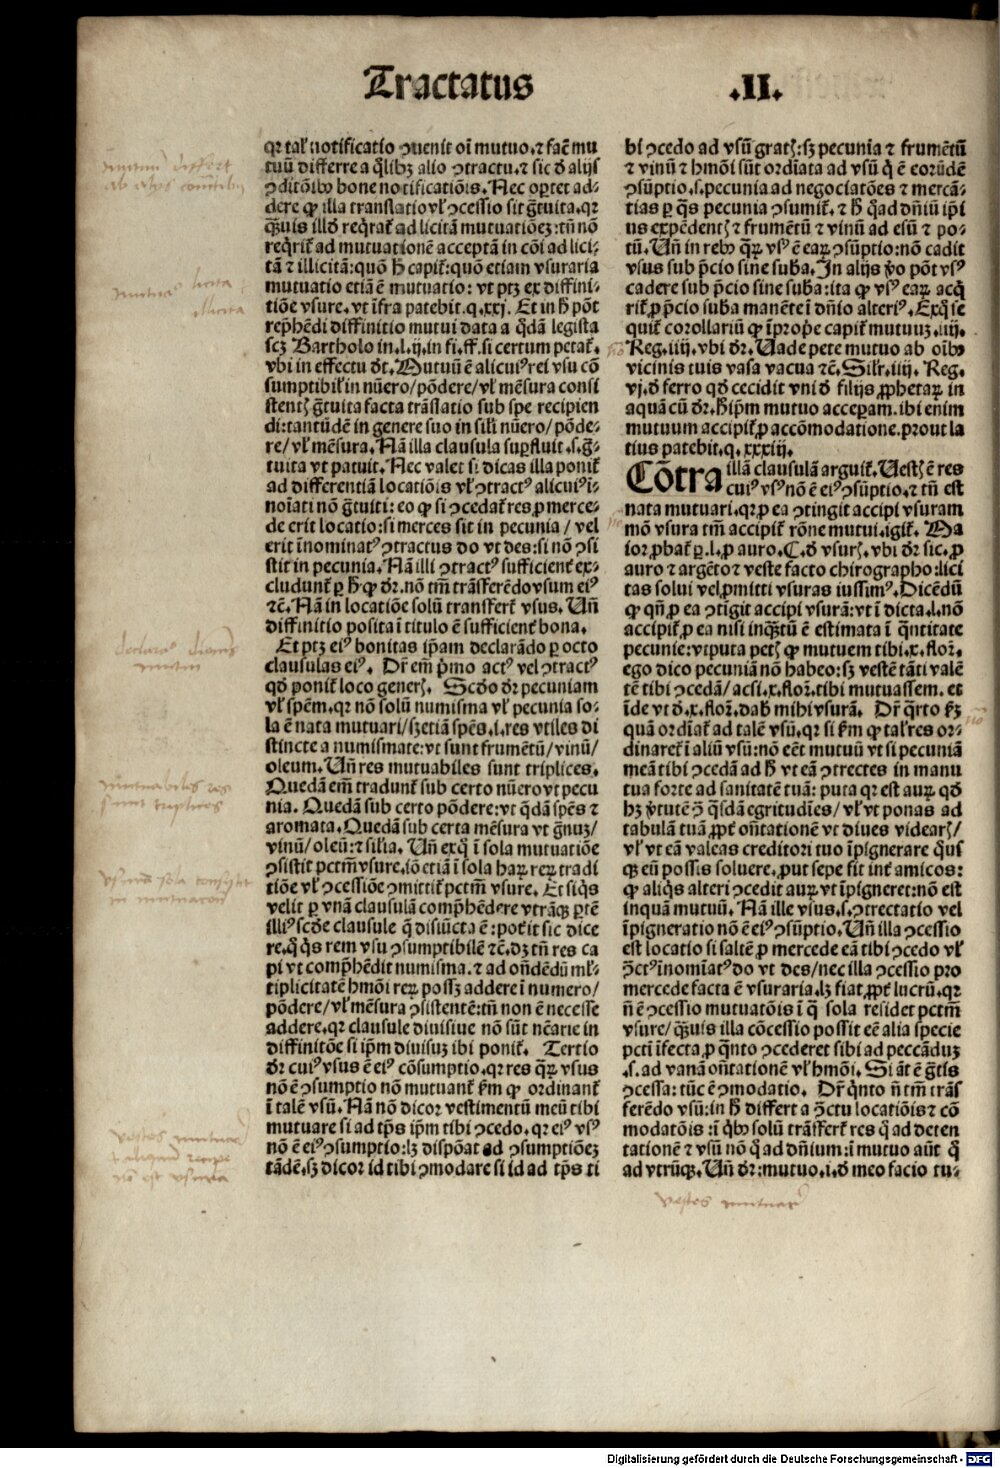 Tractatus .II.
qꝛ tal' notificatio ꝯuenit oi mutuo.⁊ facit mu
tuū differre a q̄libꝫ alio ꝯtractu.⁊ sic d' alijs
ꝯditōibꝰ bone notificatiōis. Nec oꝑtet ad-
dere ꝙ illa translatio vl' ꝯcessio sit g̃tuita.qꝛ
q̄uis illd' req̄rat̃ ad licitā mutuationeꝫ:tn̄ nō
req̄rit̃ ad mutuationē acceptā in cōi ad lici-
tā ⁊ illicitā:quō h̄ capit̃:quō etiam vsuraria
mutuatio etiā ē mutuatio: vt ptꝫ ex diffini-
tiōe vsure.vt īfra patebit.q.xxj. Et in h̄ pōt
rep̄hēdi diffinitio mutui data a q̄dā legista
scꝫ Bartholo in.l.ij.in fi.ff.si certum petat̃.
vbi in effectu dr̄. Mutuū ē alicuiꝰ rei vsu cō
sumptibil' in nūero/pōdere/vl' mēsura consi
stentꝭ g̃tuita facta trāslatio sub spe recipien
di:tantūdē in genere suo in sil'i nūero/pōde-
re/vl' mēsura. Nā illa clausula suꝑfluit.s.g̃-
tuita vt patuit. Nec valet si dicas illa ponit̃
ad differentiā locatiōis vl' ꝯtractꝰ alicuiꝰ ī-
noīati nō g̃tuiti: eo ꝙ si ꝯcedat̃ res ꝓ merce-
de erit locatio:si merces sit in pecunia / vel
erit īnominatꝰ ꝯtractus do vt des:si nō ꝯsi
stit in pecunia. Nā illi ꝯtractꝰ sufficient̃ ex-
cludunt̃ ꝑ h̄ ꝙ dr̄.nō tm̄ trāsferēdo vsum eiꝰ
⁊c. Nā in locatiōe solū transfert̃ vsus. Vn̄
diffinitio posita ī titulo ē sufficient̃ bona.
Et ptꝫ eiꝰ bonitas ip̄am declarādo ꝑ octo
clausulas eiꝰ. Dr̄ em̄ p̄mo actꝰ vel ꝯtractꝰ
qd' ponit̃ loco generꝭ. Scd'o dr̄ pecuniam
vl' spēm.qꝛ nō solū numisma vl' pecunia so-
la ē nata mutuari/sꝫ etiā spēs.i.res vtiles di
stincte a numismate:vt sunt frumētū/vinū/
oleum. Vn̄ res mutuabiles sunt triplices.
Quedā em̄ tradunt̃ sub certo nūero vt pecu
nia. Quedā sub certo pōdere:vt q̄dā spēs ⁊
aromata. Quedā sub certa mēsura vt g̃nuꝫ/
vinū/oleū:⁊ sil'ia. Vn̄ ex q̄ ī sola mutuatiōe
ꝯsistit pctm̄ vsure.iō etiā ī sola haꝝ reꝝ tradi
tiōe vl' ꝯcessiōe ꝯmittit̃ pctm̄ vsure. Et siq̄s
velit ꝑ vnā clausulā comp̄hēdere vtrāqꝫ ꝑtē
illiꝰ scd'e clausule q̄ disiūcta ē:poterit sic dice
re.q̄ q̄s rem vsu ꝯsumptibilē ⁊c.dꝫ tn̄ res ca
pi vt comp̄hēdit numisma.⁊ ad on̄dēdū ml'-
tiplicitatē hmōi reꝝ possꝫ addere ī numero/
pōdere/vl' mēsura ꝯsistentē:tn̄ non ē necesse
addere.qꝛ clausule diuisiue nō sūt nc̄arie in
diffinitōe si ip̄m diuisuꝫ ibi ponit̃. Tertio
dr̄ cuiꝰ vsus ē eiꝰ cōsumptio.qꝛ res qꝝ vsus
nō ē ꝯsumptio nō mutuant̃ km̄ ꝙ ordinant̃
ī talē vsū. Nā nō dicor vestimentū meū tibi
mutuare si ad tp̄s ip̄m tibi ꝯcedo.qꝛ eiꝰ vsꝰ
nō ē eiꝰ ꝯsumptio:lꝫ dispōat ad ꝯsumptiōeꝫ
tādē.sꝫ dicor id tibi ꝯmodare si id ad tp̄s ti
bi ꝯcedo ad vsū gratꝭ:sꝫ pecunia ⁊ frumētū
⁊ vinū ⁊ hmōi sūt ordīata ad vsū q̄ ē eorūdē
ꝯsūptio.s.pecunia ad negociatōes ⁊ mercā-
tias ꝑ q̄s pecunia ꝯsumit̃.⁊ h̄ q̄ad dn̄iū ip̄i
us expēdentꝭ ⁊ frumētū ⁊ vinū ad esū ⁊ po-
tū. Vn̄ in rebꝰ qꝝ vsꝰ ē eaꝝ ꝯsūptio:nō cadit
vsus sub p̄cio sine suba. In alijs v̄o pōt vsꝰ
cadere sub p̄cio sine suba:ita ꝙ vsꝰ eaꝝ acq̄
rit̃ ꝓ p̄cio suba manēte ī dn̄io alteriꝰ. Ex q̄ se
quit̃ corollariū ꝙ īprop̄e capit̃ mutuuꝫ.iiij.
Reg.iiij.vbi dr̄. Uade pete mutuo ab oībꝰ
vicinis tuis vasa vacua ⁊c. Sil'r.iiij. Reg.
vj.d' ferro qd' cecidit vni d' filijs ꝓphetaꝝ in
aquā cū dr̄.h̄ ip̄m mutuo acceꝑam.ibi enim
mutuum accipit̃ ꝓ accōmodatione.prout la
tius patebit.q.xxxiij.
Cōtra illā clausulā arguit̃. Uestꝭ ē res
cuiꝰ vsꝰ nō ē eiꝰ ꝯsūptio.⁊ tn̄ est
nata mutuari.qꝛ ꝓ ea ꝯtingit accipi vsuram
mō vsura tm̄ accipit̃ rōne mutui.igit̃. Ma
ior ꝓbat̃ ꝑ.l.ꝓ auro. C.d' vsurꝭ.vbi dr̄ sic.ꝓ
auro ⁊ argēto ⁊ veste facto chirographo:lici
tas solui vel ꝓmitti vsuras iussimꝰ. Dicēdū
ꝙ qn̄ ꝓ ea ꝯtīgit accipi vsurā:vt ī dicta.l.nō
accipit̃ ꝓ ea nisi inq̄tū ē estimata ī q̄ntitate
pecunie:vtputa petꝭ ꝙ mutuem tibi.x.floꝝ.
ego dico pecuniā nō habeo:sꝫ vestē tāti valē
tē tibi ꝯcedā/acsi.x.floꝝ.tibi mutuassem. et
īde vt d'.x.floꝝ.dab̄ mihi vsurā. Dr̄ q̄rto kꝫ
quā ordīat̃ ad talē vsū.qꝛ si km̄ ꝙ tal' res or-
dinaret̃ ī aliū vsū:nō eēt mutuū vt si pecuniā
meā tibi ꝯcedā ad h̄ vt eā ꝯtrectes in manu
tua forte ad sanitatē tuā: puta qꝛ est auꝝ qd'
hꝫ v̄tutē ꝯ̄ q̄sdā egritudīes/ vl' vt ponas ad
tabulā tuā ꝓpt̃ on̄tationē vt diues videarꝭ/
vl' vt eā valeas creditori tuo īpignerare q̄usqꝫ
eū possis soluere.put sepe fit int̃ amicos:
ꝙ aliq̄s alteri ꝯcedit auꝝ vt īpigneret:nō est
inquā mutuū. Nā ille vsus.s.ꝯtrectatio vel
īpigneratio nō ē eiꝰ ꝯsūptio. Vn̄ illa ꝯcessio
est locatio si saltē ꝓ mercede eā tibi ꝯcedo vl'
ꝯ̄ctꝰ īnomīatꝰ do vt des/nec illa ꝯcessio pro
mercede facta ē vsuraria.lꝫ fiat ꝓpt̃ lucrū.qꝛ
n̄ ē ꝯcessio mutuatōis ī q̄ sola residet pctm̄
vsure/q̄uis illa cōcessio possit eē alia specie
pcti īfecta.ꝓ q̄nto ꝯcederet sibi ad peccāduꝫ
.s.ad vanā on̄tationē vl' hmōi. Si āt ē g̃tis
ꝯcessa: tūc ē ꝯmodatio. Dr̄ q̄nto n̄ tm̄ trās
ferēdo vsū:in h̄ differt a ꝯ̄ctu locatiōis ⁊ cō
modatōis :ī q̄bꝰ solū trāsfert̃ res q̄ ad deten
tationē ⁊ vsū nō q̄ ad dn̄ium:ī mutuo aūt q̄
ad vtrūqꝫ. Vn̄ dr̄:mutuo.i.d' meo facio tu-
Digitalisierung gefördert durch die Deutsche Forschungsgemeinschaft - DFG